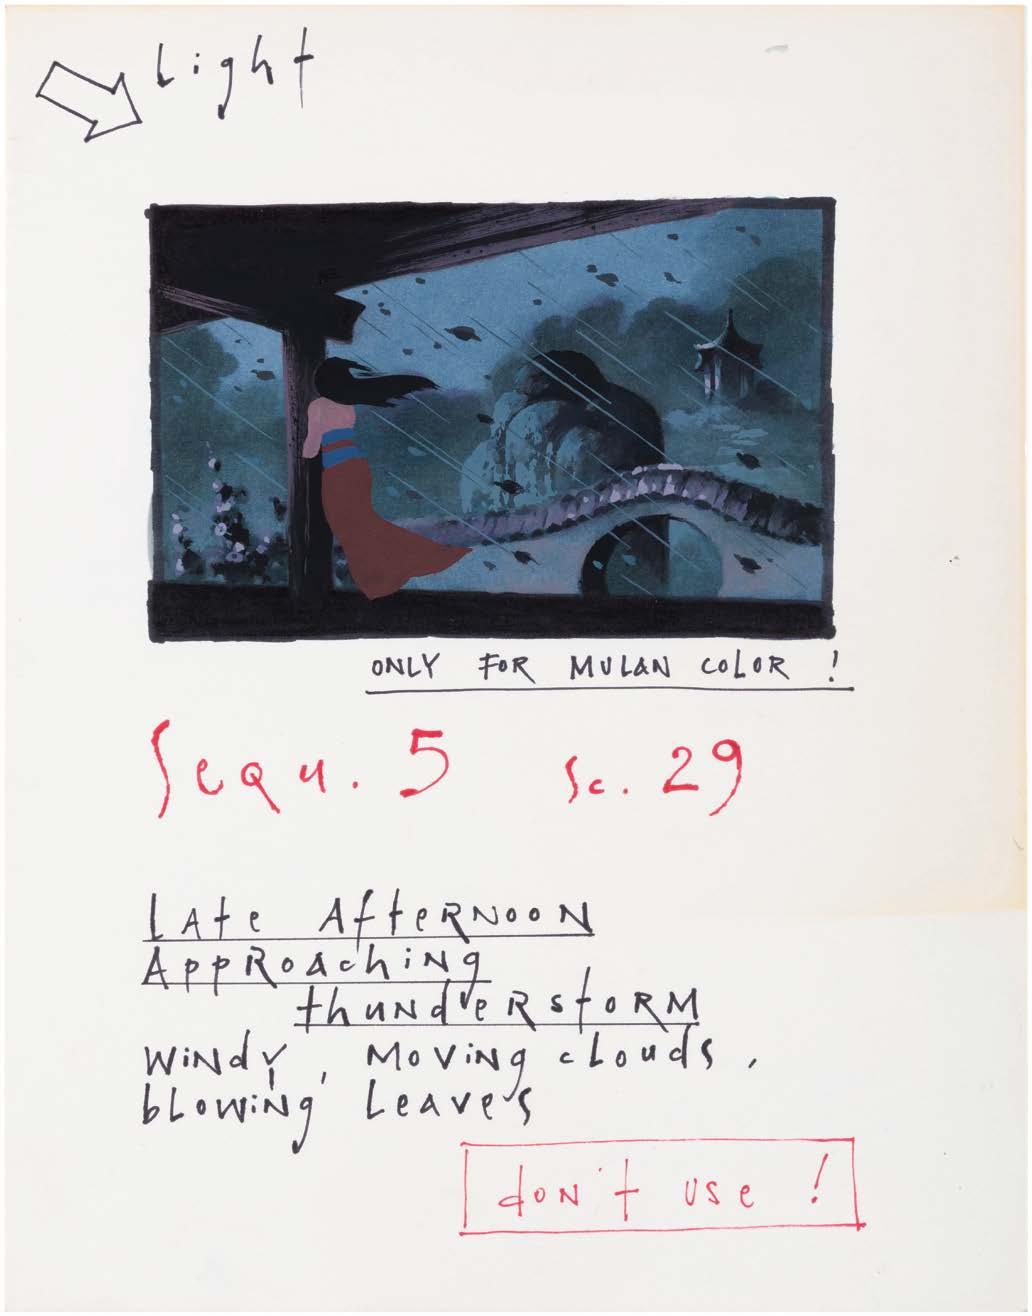 Light
ONLY FOR MULAN COLOR !
Sequ. 5 Sc. 29
Late Afternoon
Approaching
thunderstorm
windy, moving clouds,
blowing leaves
don't use !